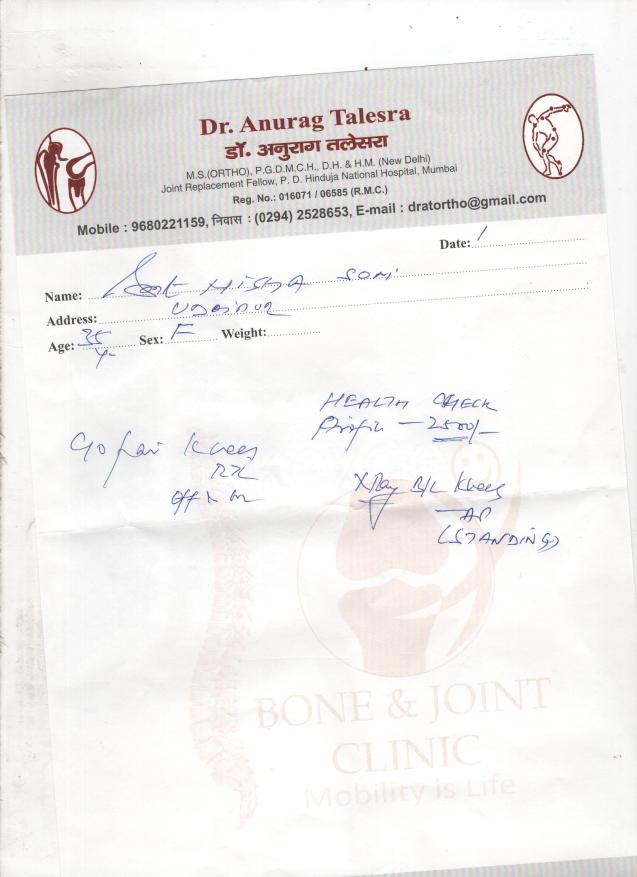 Dr. Anurag Talesra
डॉ. अनुराग तलेसरा
M.S.(ORTHO), P.G.D.M.C.H., D.H. & H.M. (New Delhi)
Joint Replacement Fellow, P. D. Hinduja National Hospital, Mumbai
Reg. No.: 016071 / 06585 (R.M.C.)
Mobile : 9680221159, निवास : (0294) 2528653, E-mail : dratortho@gmail.com
Date:
Name: SONI
Address: Udaipur
Age: 35 Sex: F Weight:
HEALTH CHECK
2500/-
C/o Pain Knees
X Ray B/L Knees
AP
(STANDING)
BONE & JOINT
CLINIC
Mobility is Life